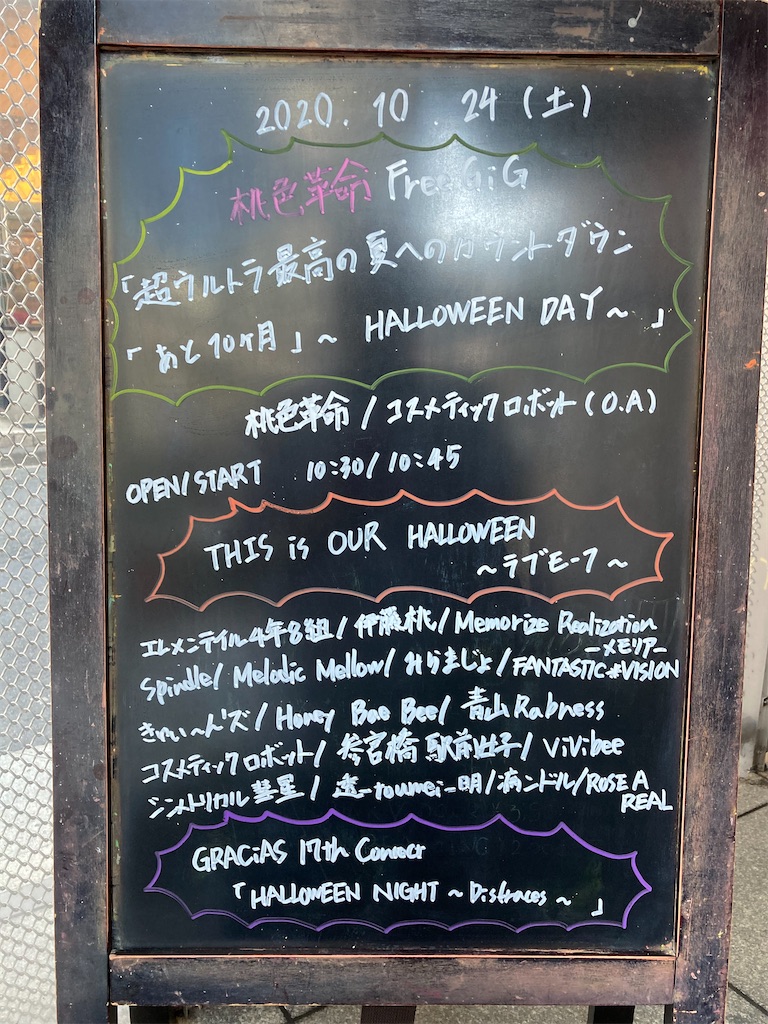 2020. 10 . 24 (土)
桃色革命 Free GiG
「超ウルトラ最高の夏へのカウントダウン
「あと10ヶ月」~ HALLOWEEN DAY~ 」
桃色革命 / コスメティックロボット (O.A)
OPEN/START 10:30/10:45
THIS is OUR HALLOWEEN
~ラブモーフ~
エレメンテイル4年8組/伊藤桃/Memorize Realization
-メモリアー
Spindle/ Melodic Mellow/みらまじょ/FANTASTIC#VISION
きゃい~ん'ズ/Honey Bee Bee/青山Rabness
コスメティックロボット/参宮橋駅前女子/ViVibee
シンメトリカル彗星/透-toumei-明/病ンドル/ROSE A
REAL
GRACiAS 17th Concert
「HALLOWEEN NIGHT ~Disfraces~ 」